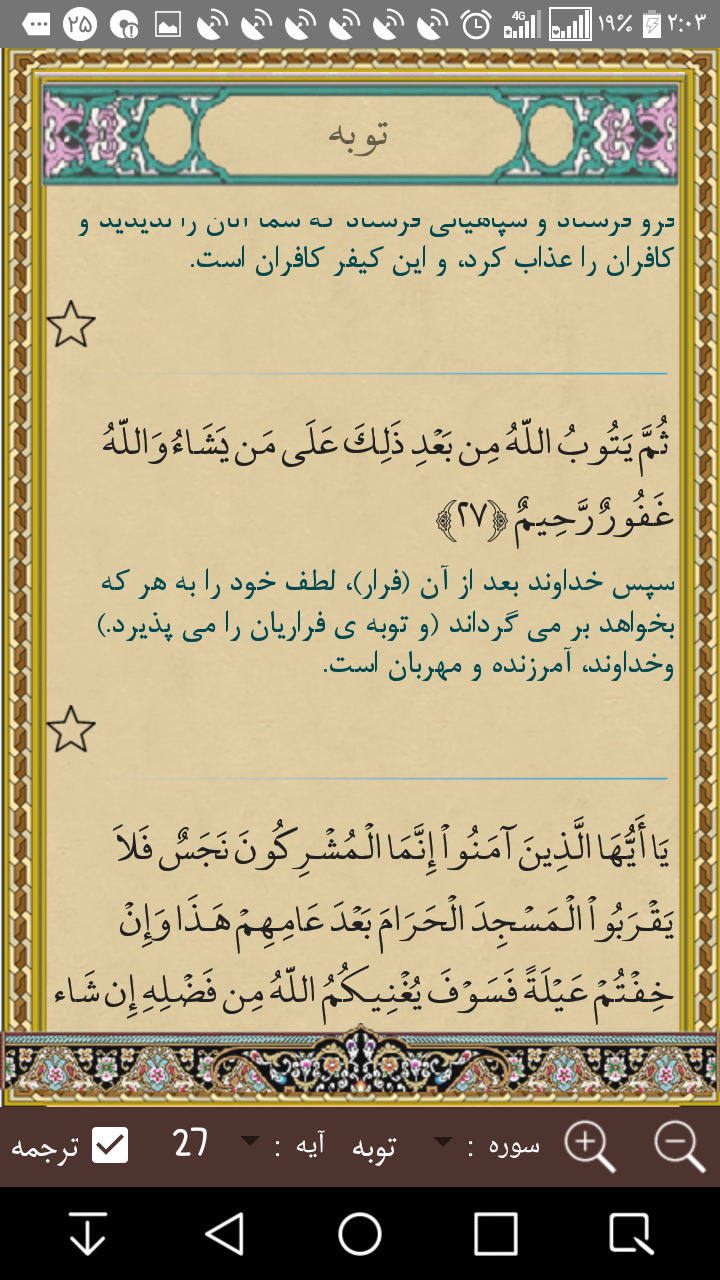 ۲۵ 4G ۱۹% ۲:۰۳
توبه
فرو فرستاد و سپاهیانی فرستاد که شما آنان را ندیدید و
کافران را عذاب کرد، و این کیفر کافران است.
ثُمَّ يَتُوبُ اللّهُ مِن بَعْدِ ذَلِكَ عَلَى مَن يَشَاءُ وَاللّهُ
غَفُورٌ رَّحِيمٌ ﴿۲۷﴾
سپس خداوند بعد از آن (فرار)، لطف خود را به هر که
بخواهد بر می گرداند (و توبه ی فراریان را می پذیرد.)
وخداوند، آمرزنده و مهربان است.
يَا أَيُّهَا الَّذِينَ آمَنُواْ إِنَّمَا الْمُشْرِكُونَ نَجَسٌ فَلاَ
يَقْرَبُواْ الْمَسْجِدَ الْحَرَامَ بَعْدَ عَامِهِمْ هَذَا وَإِنْ
خِفْتُمْ عَيْلَةً فَسَوْفَ يُغْنِيكُمُ اللّهُ مِن فَضْلِهِ إِن شَاء
سوره : توبه آیه : 27 ترجمه